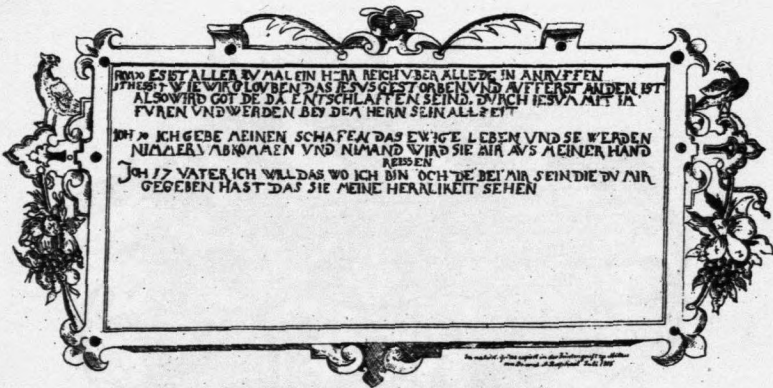 ROM 10 ES IST ALLER ZV MAL EIN HERR REICH VBER ALLE DE IN ANRVFFEN
1 THESS: 4 WIE WIR GLOVBEN DAS IESVS GESTORBEN VND AVFFERSTANDEN IST
ALSO WIRD GOT DE DA ENTSCHLAFFEN SEIND. DVRCH IESVM MIT IM
FVREN VND WERDEN BEI DEM HERN SEIN ALLZEIT
IOH 10 ICH GEBE MEINEN SCHAFEN DAS EWIGE LEBEN VND SE WERDEN
NIMMER VMBKOMMEN VND NIMAND WIRD SIE MIR AVS MEINER HAND
REISSEN
IOH 17 VATER ICH WILL DAS WO ICH BIN OCH DE BEI MIR SEIN DIE DV MIR
GEGEBEN HAST DAS SIE MEINE HERRLIKEIT SEHEN
in der Fürstengruft zu